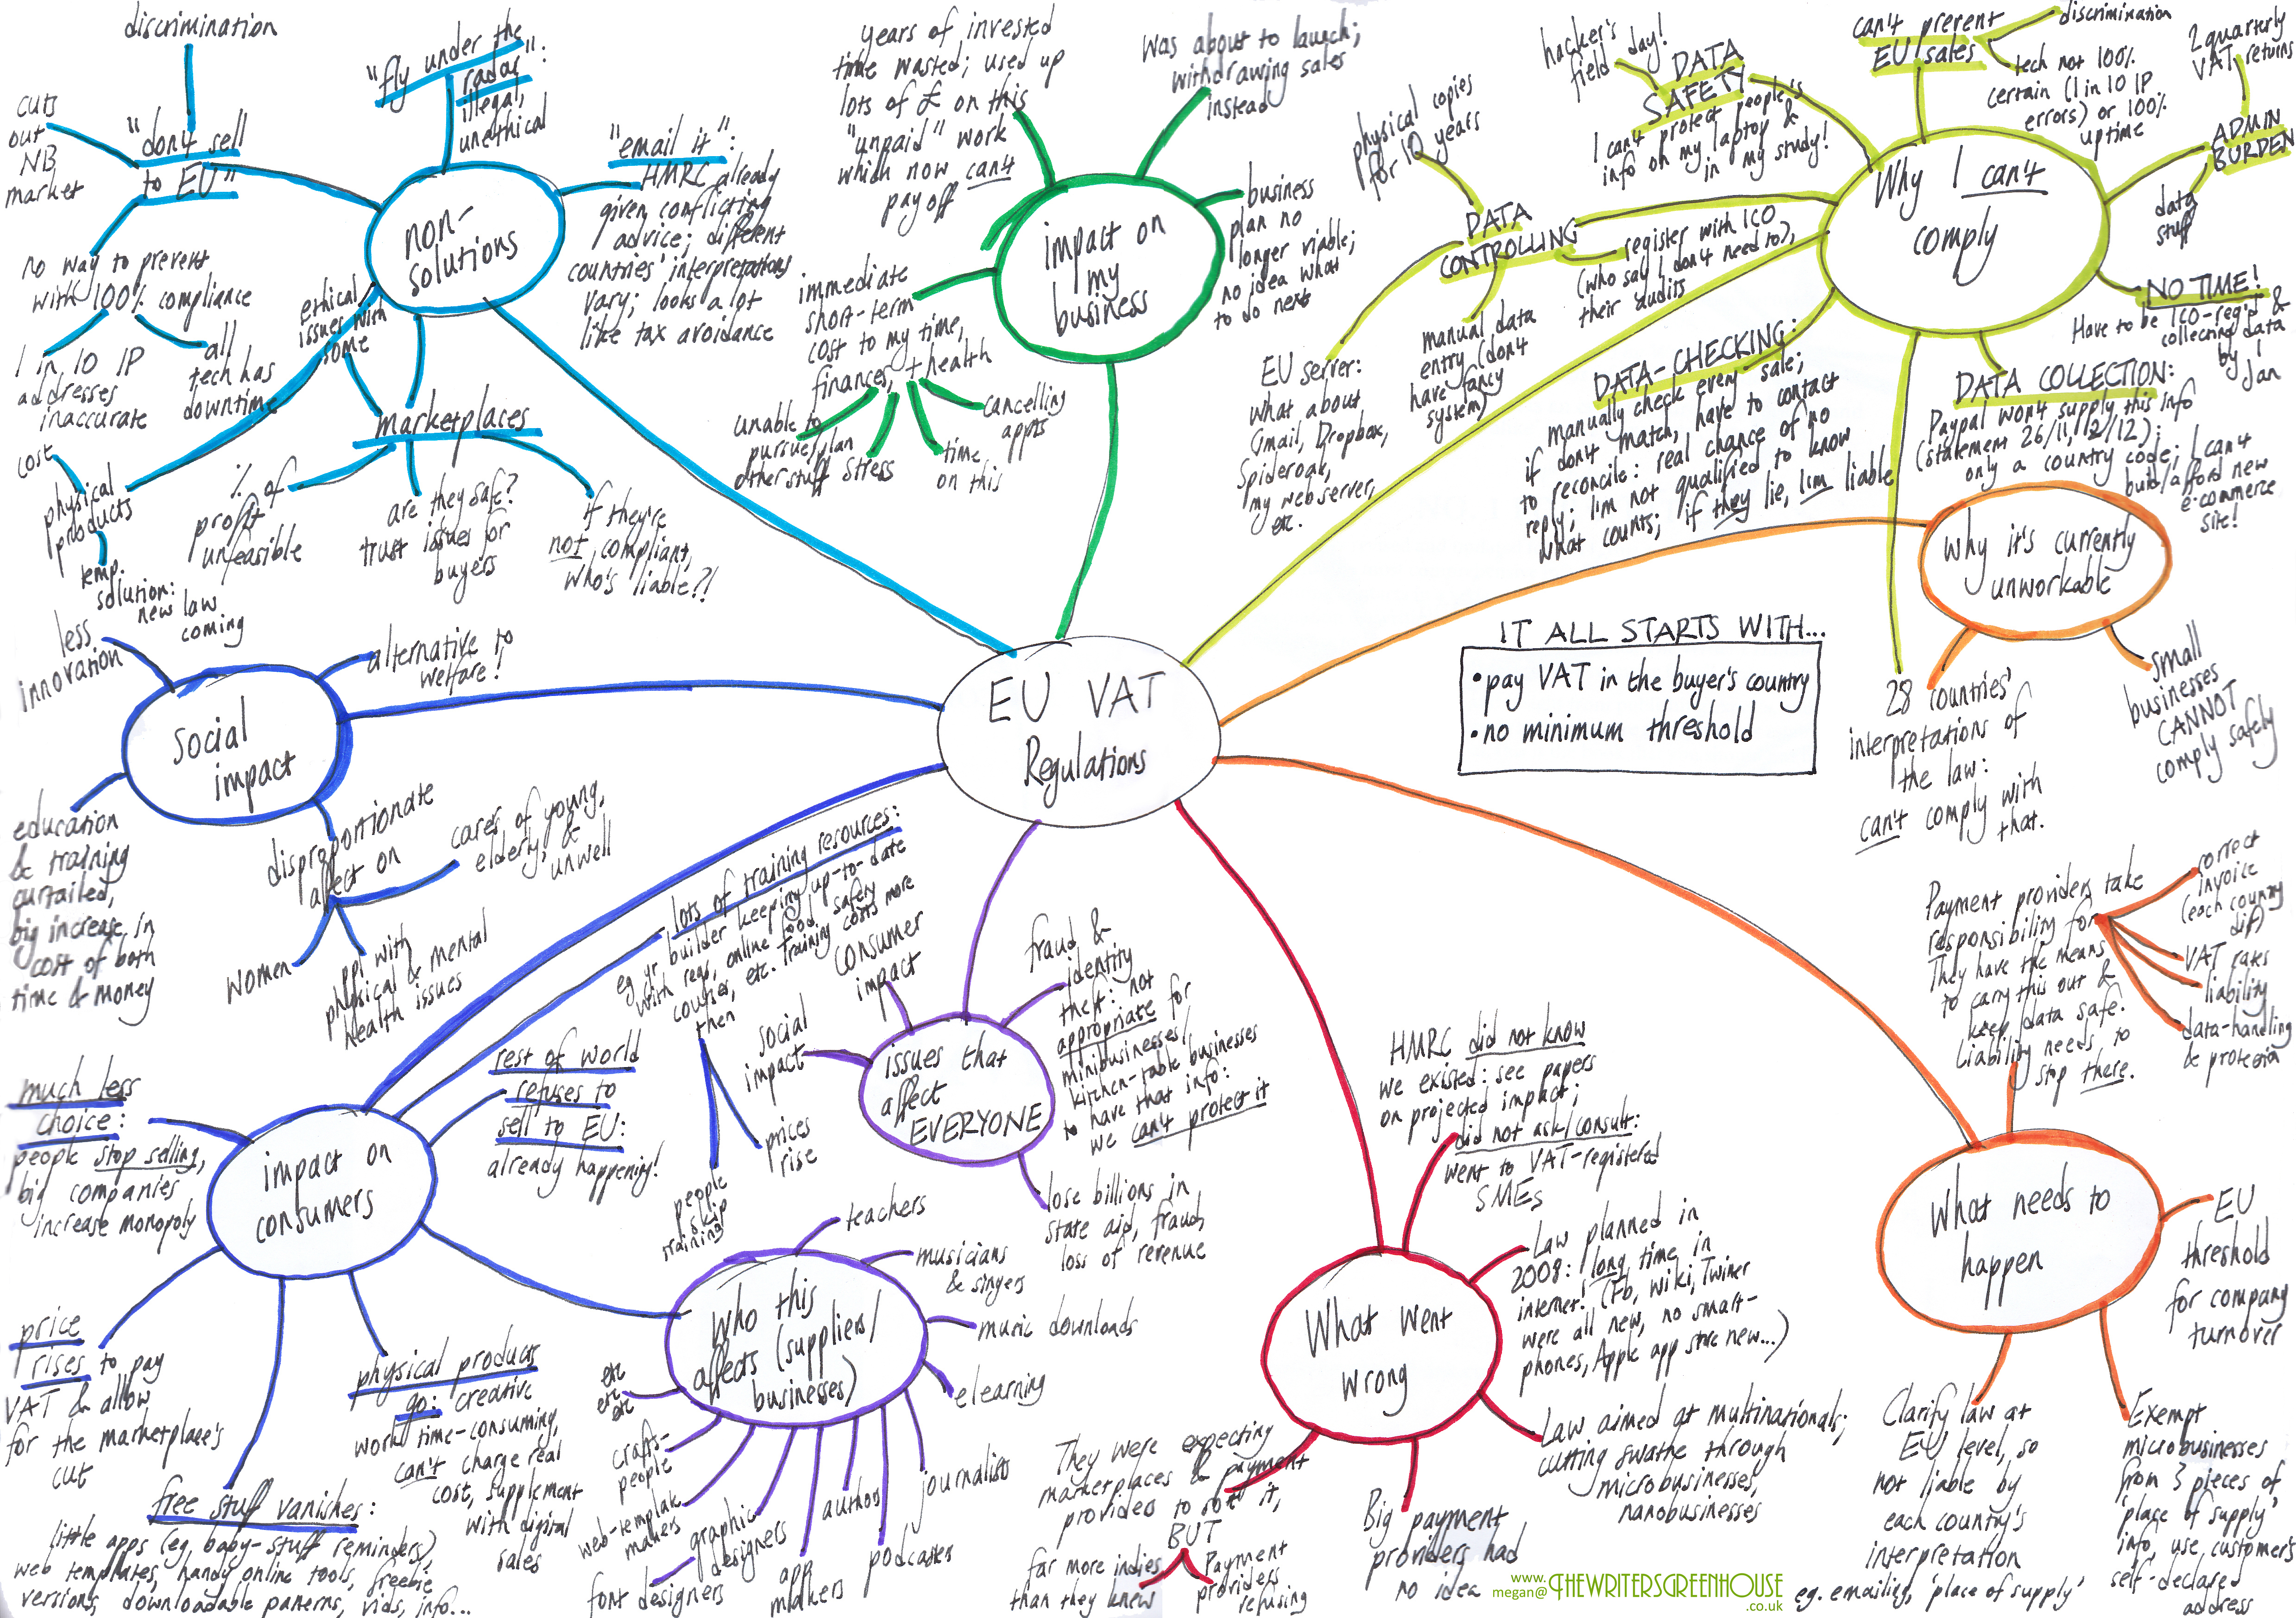 EU VAT
Regulations
IT ALL STARTS WITH...
• pay VAT in the buyer's country
• no minimum threshold
non-
solutions
discrimination
cuts
out
NB
market
"don't sell
to EU"
no way to prevent
with 100% compliance
1 in 10 IP
addresses
inaccurate
all
tech has
downtime
"fly under the
radar":
illegal,
unethical
"email it":
HMRC already
given conflicting
advice; different
countries' interpretations
vary; looks a lot
like tax avoidance
ethical
issues with
some
marketplaces
% of
profit
unfeasible
are they safe?
trust issues for
buyers
if they're
not compliant,
who's liable?!
cost
physical
products
temp.
solution:
new law
coming
impact on
my
business
years of invested
time wasted; used up
lots of £ on this
"unpaid" work
which now can't
pay off
was about to launch;
withdrawing sales
instead
business
plan no
longer viable;
no idea what
to do next
immediate
short-term
cost to my time,
finances, + health
unable to
pursue/plan
other stuff
stress
time
on this
cancelling
appts
Why I can't
comply
hacker's
field day!
DATA
SAFETY
I can't protect people's
info on my laptop &
in my study!
can't prevent
EU sales
discrimination
tech not 100%
certain (1 in 10 IP
errors) or 100%
uptime
2 quarterly
VAT returns
ADMIN
BURDEN
data
stuff
NO TIME!
Have to be ICO-reg'd &
collecting data
by 1
Jan
physical copies
for 10 years
DATA
CONTROLLING
register with ICO
(who say I don't need to),
their audits
manual data
entry (don't
have fancy
system)
EU server:
what about
Gmail, Dropbox,
Spideroak,
my webserver,
etc.
DATA-CHECKING:
manually check every sale;
if don't match, have to contact
to reconcile: real chance of no
reply; I'm not qualified to know
what counts; if they lie, I'm liable
DATA COLLECTION:
Paypal won't supply this info
(statement 26/11, 2/12);
only a country code; I can't
build/afford new
e-commerce
site!
Why it's currently
unworkable
28 countries'
interpretations of
the law:
can't comply with
that.
small
businesses
CANNOT
comply safely
social
impact
less
innovation
alternative to
welfare!
education
& training
curtailed,
big increase in
cost of both
time & money
disproportionate
affect on
women
ppl with
physical & mental
health issues
cares of young,
elderly, &
unwell
impact on
consumers
lots of training resources:
eg yr builder keeping up-to-date
with regs, online food safety
courses, etc. Training costs more
then
people
skip
training
prices
rise
rest of world
refuses to
sell to EU:
already happening!
much less
choice:
people stop selling,
big companies
increase monopoly
price
rises to pay
VAT & allow
for the marketplace's
cut
free stuff vanishes:
little apps (eg, baby-stuff reminders)
web templates, handy online tools, freebie
versions, downloadable patterns, vids, info...
physical products
go: creative
work time-consuming,
can't charge real
cost, supplement
with digital
sales
issues that
affect
EVERYONE
consumer
impact
social
impact
fraud &
identity
theft: not
appropriate for
minibusinesses/
kitchen-table businesses
to have that info:
we can't protect it
lose billions in
state aid, fraud,
loss of revenue
Who this
affects (suppliers/
businesses)
teachers
musicians
& singers
music downloads
elearning
journalists
podcasters
authors
app
makers
graphic
designers
font designers
web-template
makers
crafts-
people
etc
etc
etc
What went
wrong
HMRC did not know
we existed: see papers
on projected impact;
did not ask/consult:
went to VAT-registered
SMEs
Law planned in
2008: long time in
internet! (Fb, Wiki, Twitter
were all new, no smart-
phones, Apple app store new...)
Law aimed at multinationals;
cutting swathe through
microbusinesses,
nanobusinesses
Big payment
providers had
no idea
They were expecting
marketplaces & payment
providers to sort it,
BUT
far more indies
than they knew
Payment
providers
refusing
What needs to
happen
Payment providers take
responsibility for
They have the means
to carry this out &
keep data safe.
Liability needs to
stop there.
correct
invoice
(each country
diff)
VAT rates
liability
data-handling
& protection
EU
threshold
for company
turnover
Exempt
microbusinesses
from 3 pieces of
'place of supply'
info, use customer's
self-declared
address
Clarify law at
EU level, so
not liable by
each country's
interpretation
eg. emailing, 'place of supply'
www.
megan@THEWRITERSGREENHOUSE
.co.uk